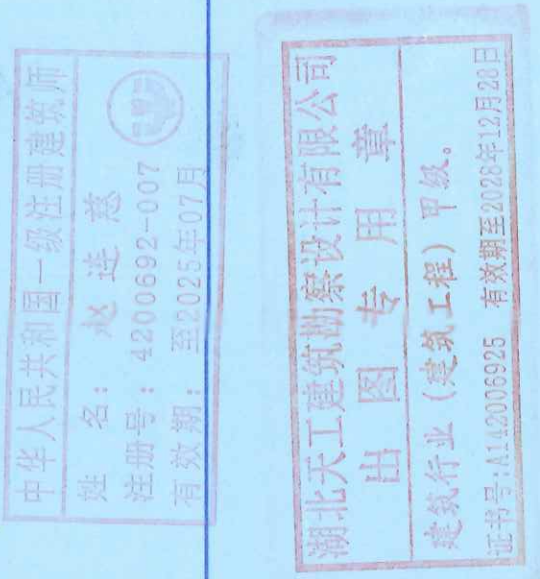 中华人民共和国一级注册建筑师
姓 名： 赵连慈
注册号：4200692-007
有效期：至2025年07月
湖北天工建筑勘察设计有限公司
出图专用章
建筑行业（建筑工程）甲级。
证书号：A142006925 有效期至2028年12月28日